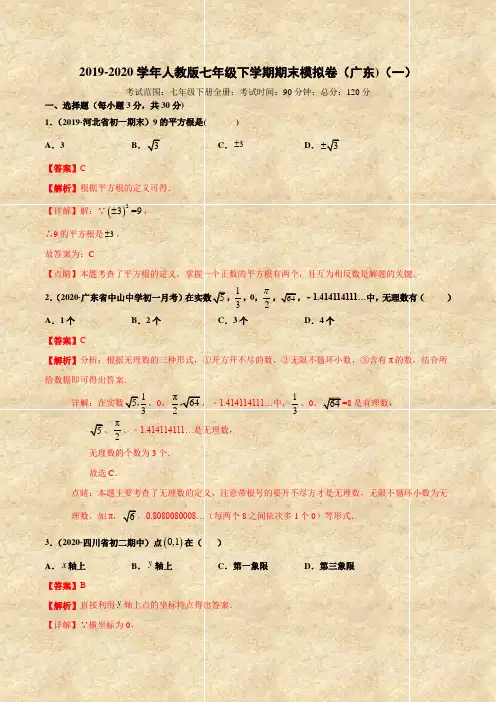 2019-2020 学年人教版七年级下学期期末模拟卷（广东）（一）
考试范围：七年级下册全册；考试时间：90 分钟；总分：120 分
一、选择题（每小题 3 分，共 30 分）
1．（2019·河北省初一期末）9 的平方根是(    )
A．3 B．√3 C．±3 D．±√3
【答案】C
【解析】根据平方根的定义可得．
【详解】解：∵(±3)²=9，
∴9 的平方根是±3．
故答案为：C
【点睛】本题考查了平方根的定义，掌握一个正数的平方根有两个，且互为相反数是解题的关键．
2．（2020·广东省中山中学初一月考）在实数√5，1/3，0，π/2，√64，﹣1.414114111…中，无理数有（    ）
A．1个 B．2个 C．3个 D．4个
【答案】C
【解析】分析：根据无理数的三种形式，①开方开不尽的数，②无限不循环小数，③含有π的数，结合所
给数据即可得出答案．
详解：在实数√5、1/3、0、π/2、√64、﹣1.414114111…中，1/3、0、√64=8是有理数，
√5、π/2、﹣1.414114111…是无理数，
无理数的个数为 3 个．
故选 C．
点睛：本题主要考查了无理数的定义，注意带根号的要开不尽方才是无理数，无限不循环小数为无
理数．如π，√6，0.8080080008…（每两个 8 之间依次多 1 个 0）等形式．
3．（2020·四川省初二期中）点(0,1)在（    ）
A．x轴上 B．y轴上 C．第一象限 D．第三象限
【答案】B
【解析】直接利用y轴上点的坐标特点得出答案．
【详解】∵横坐标为 0，